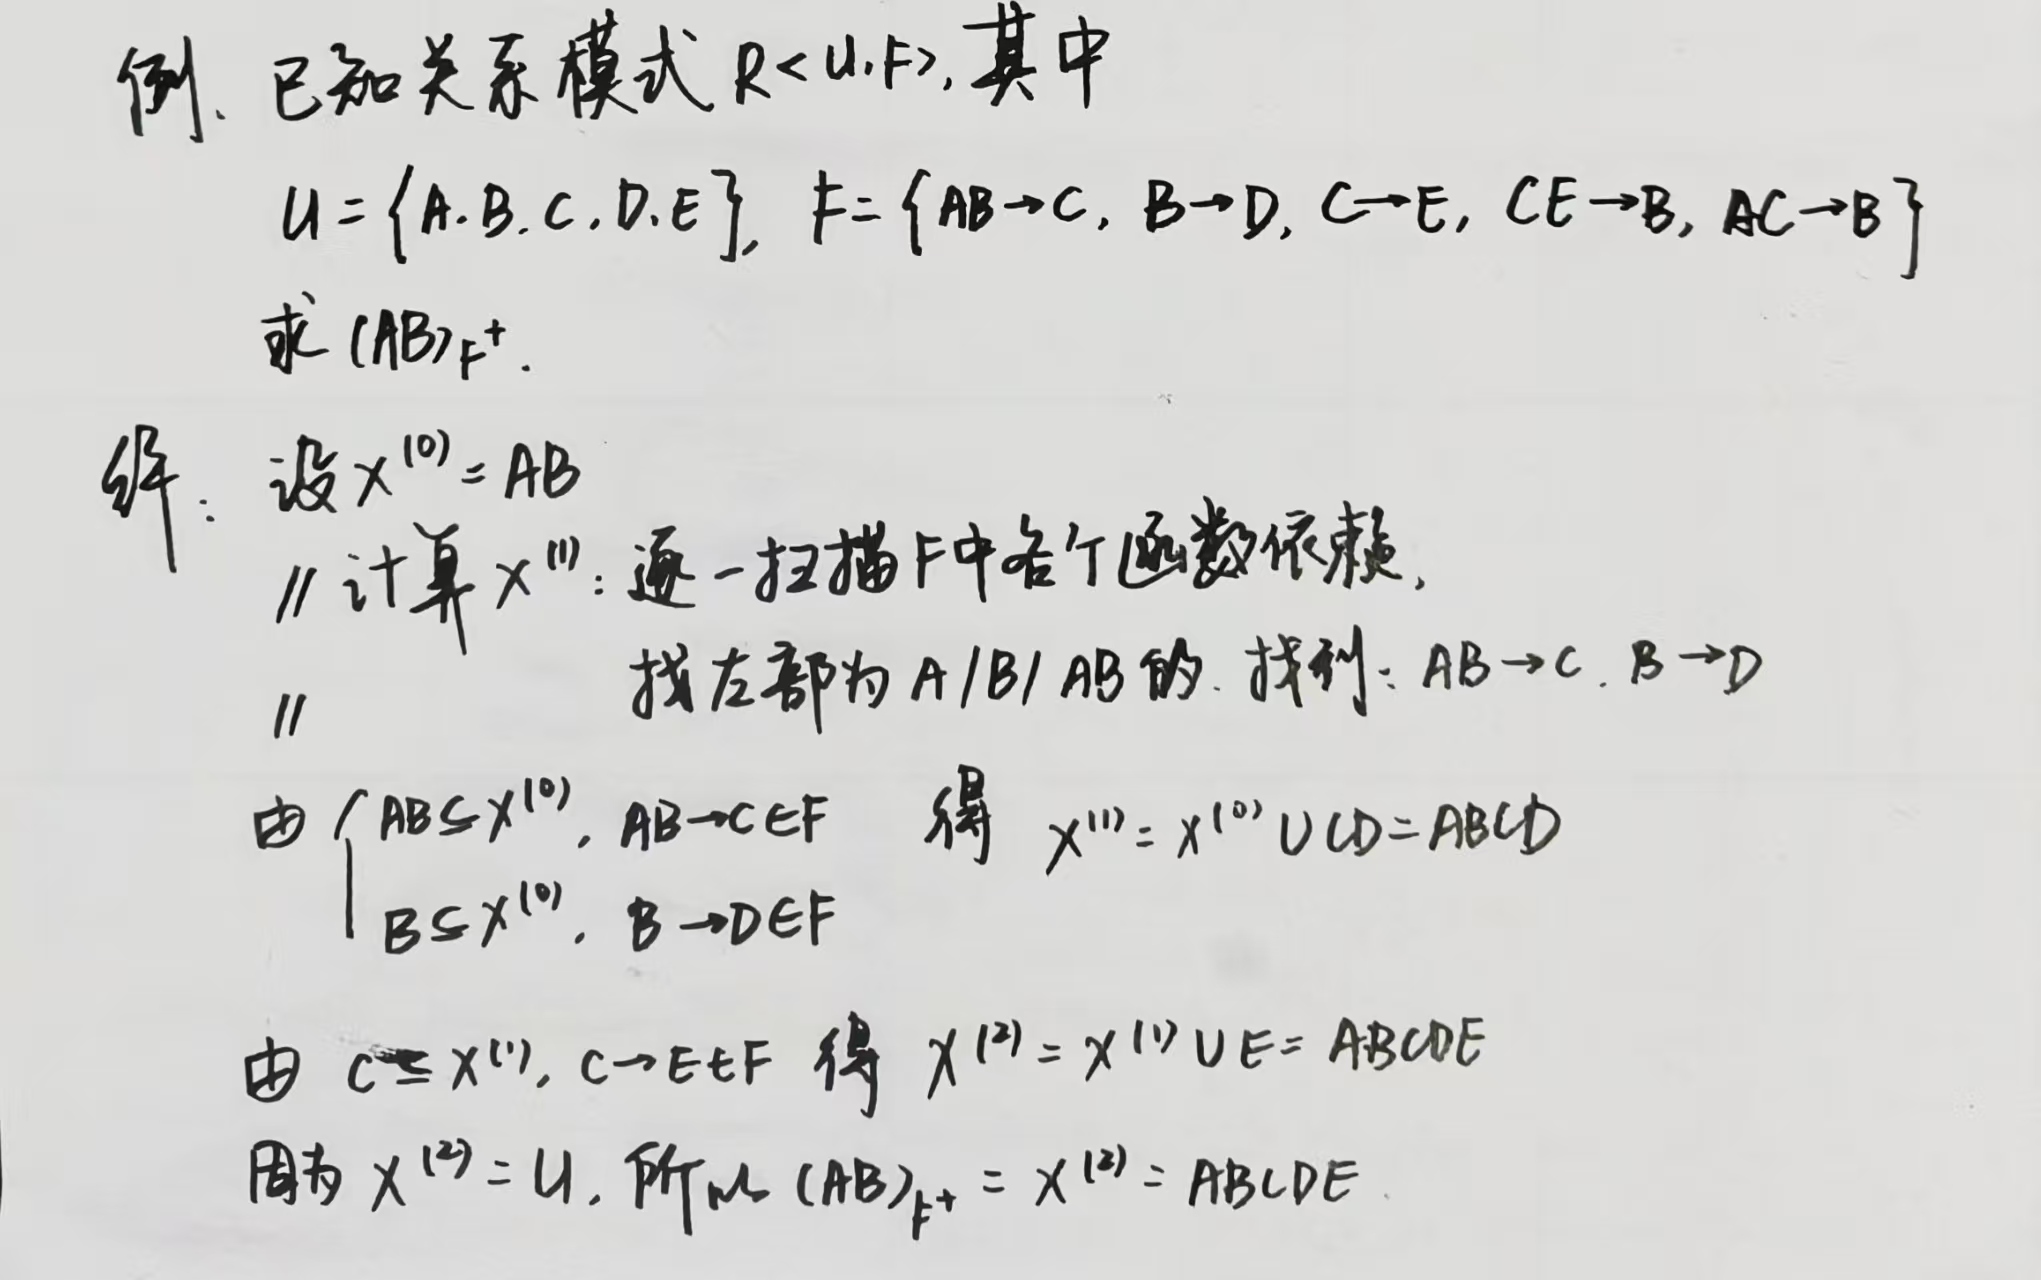 例. 已知关系模式 R<U.F>, 其中
U={A.B.C.D.E}, F={AB→C, B→D, C→E, CE→B, AC→B}
求 (AB)F+.
解: 设 X(0)=AB
// 计算 X(1): 逐一扫描F中各个函数依赖,
// 找左部为 A/B/AB 的. 找到: AB→C. B→D
由 { AB⊆X(0), AB→C∈F 得 X(1)=X(0)∪CD=ABCD
B⊆X(0), B→D∈F
由 C⊆X(1), C→E∈F 得 X(2)=X(1)∪E=ABCDE
因为 X(2)=U, 所以 (AB)F+ = X(2) = ABCDE.